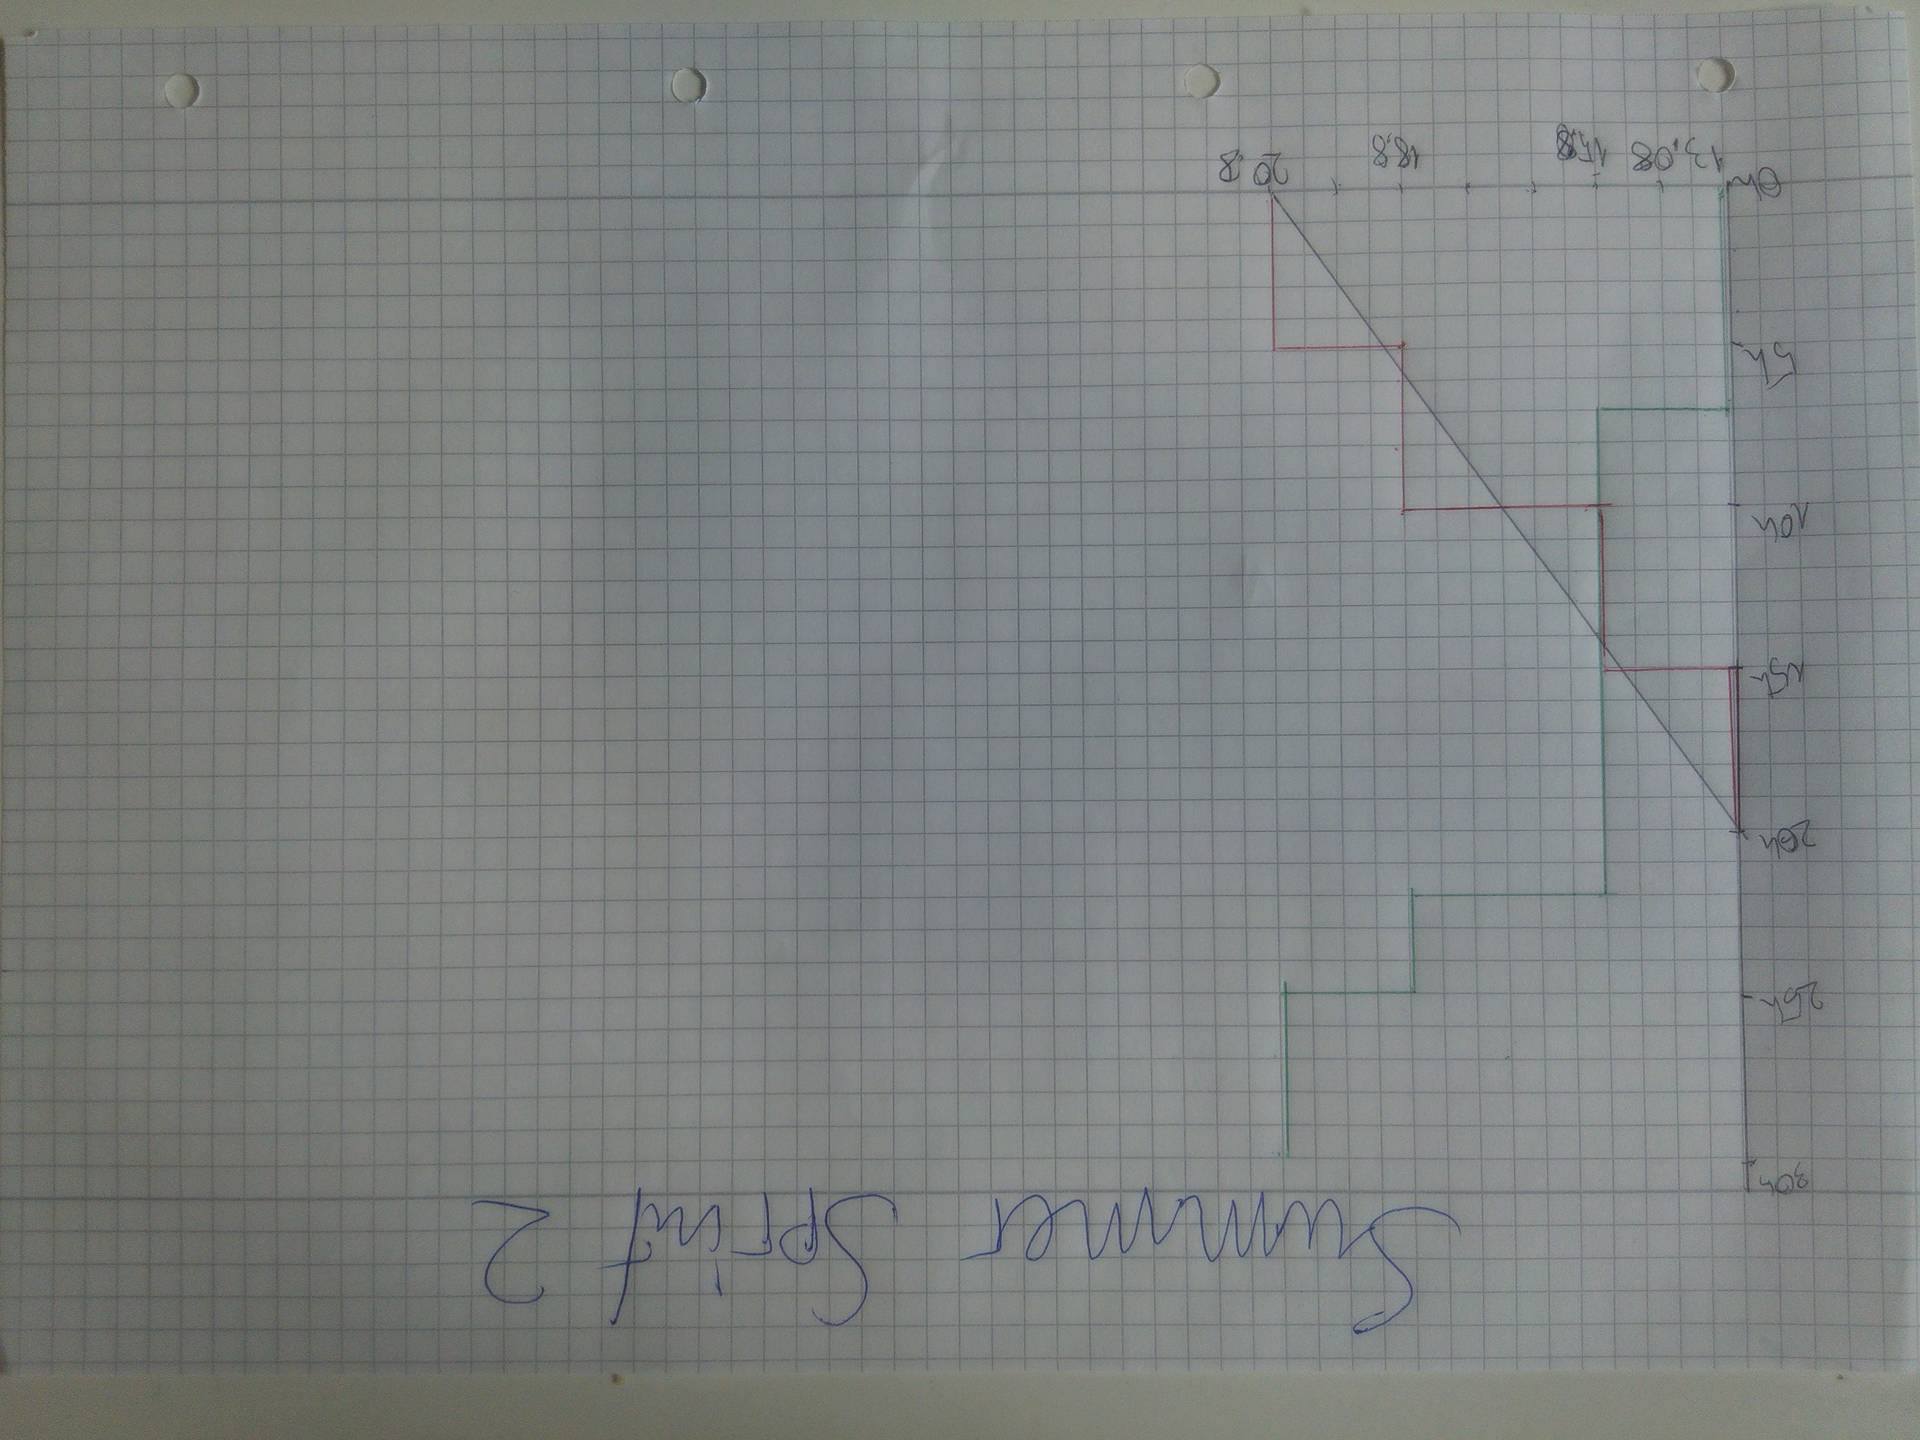 Summer Sprint 2
30h
25h
20h
15h
10h
5h
0h
13.08 15.8 18.8 20.8